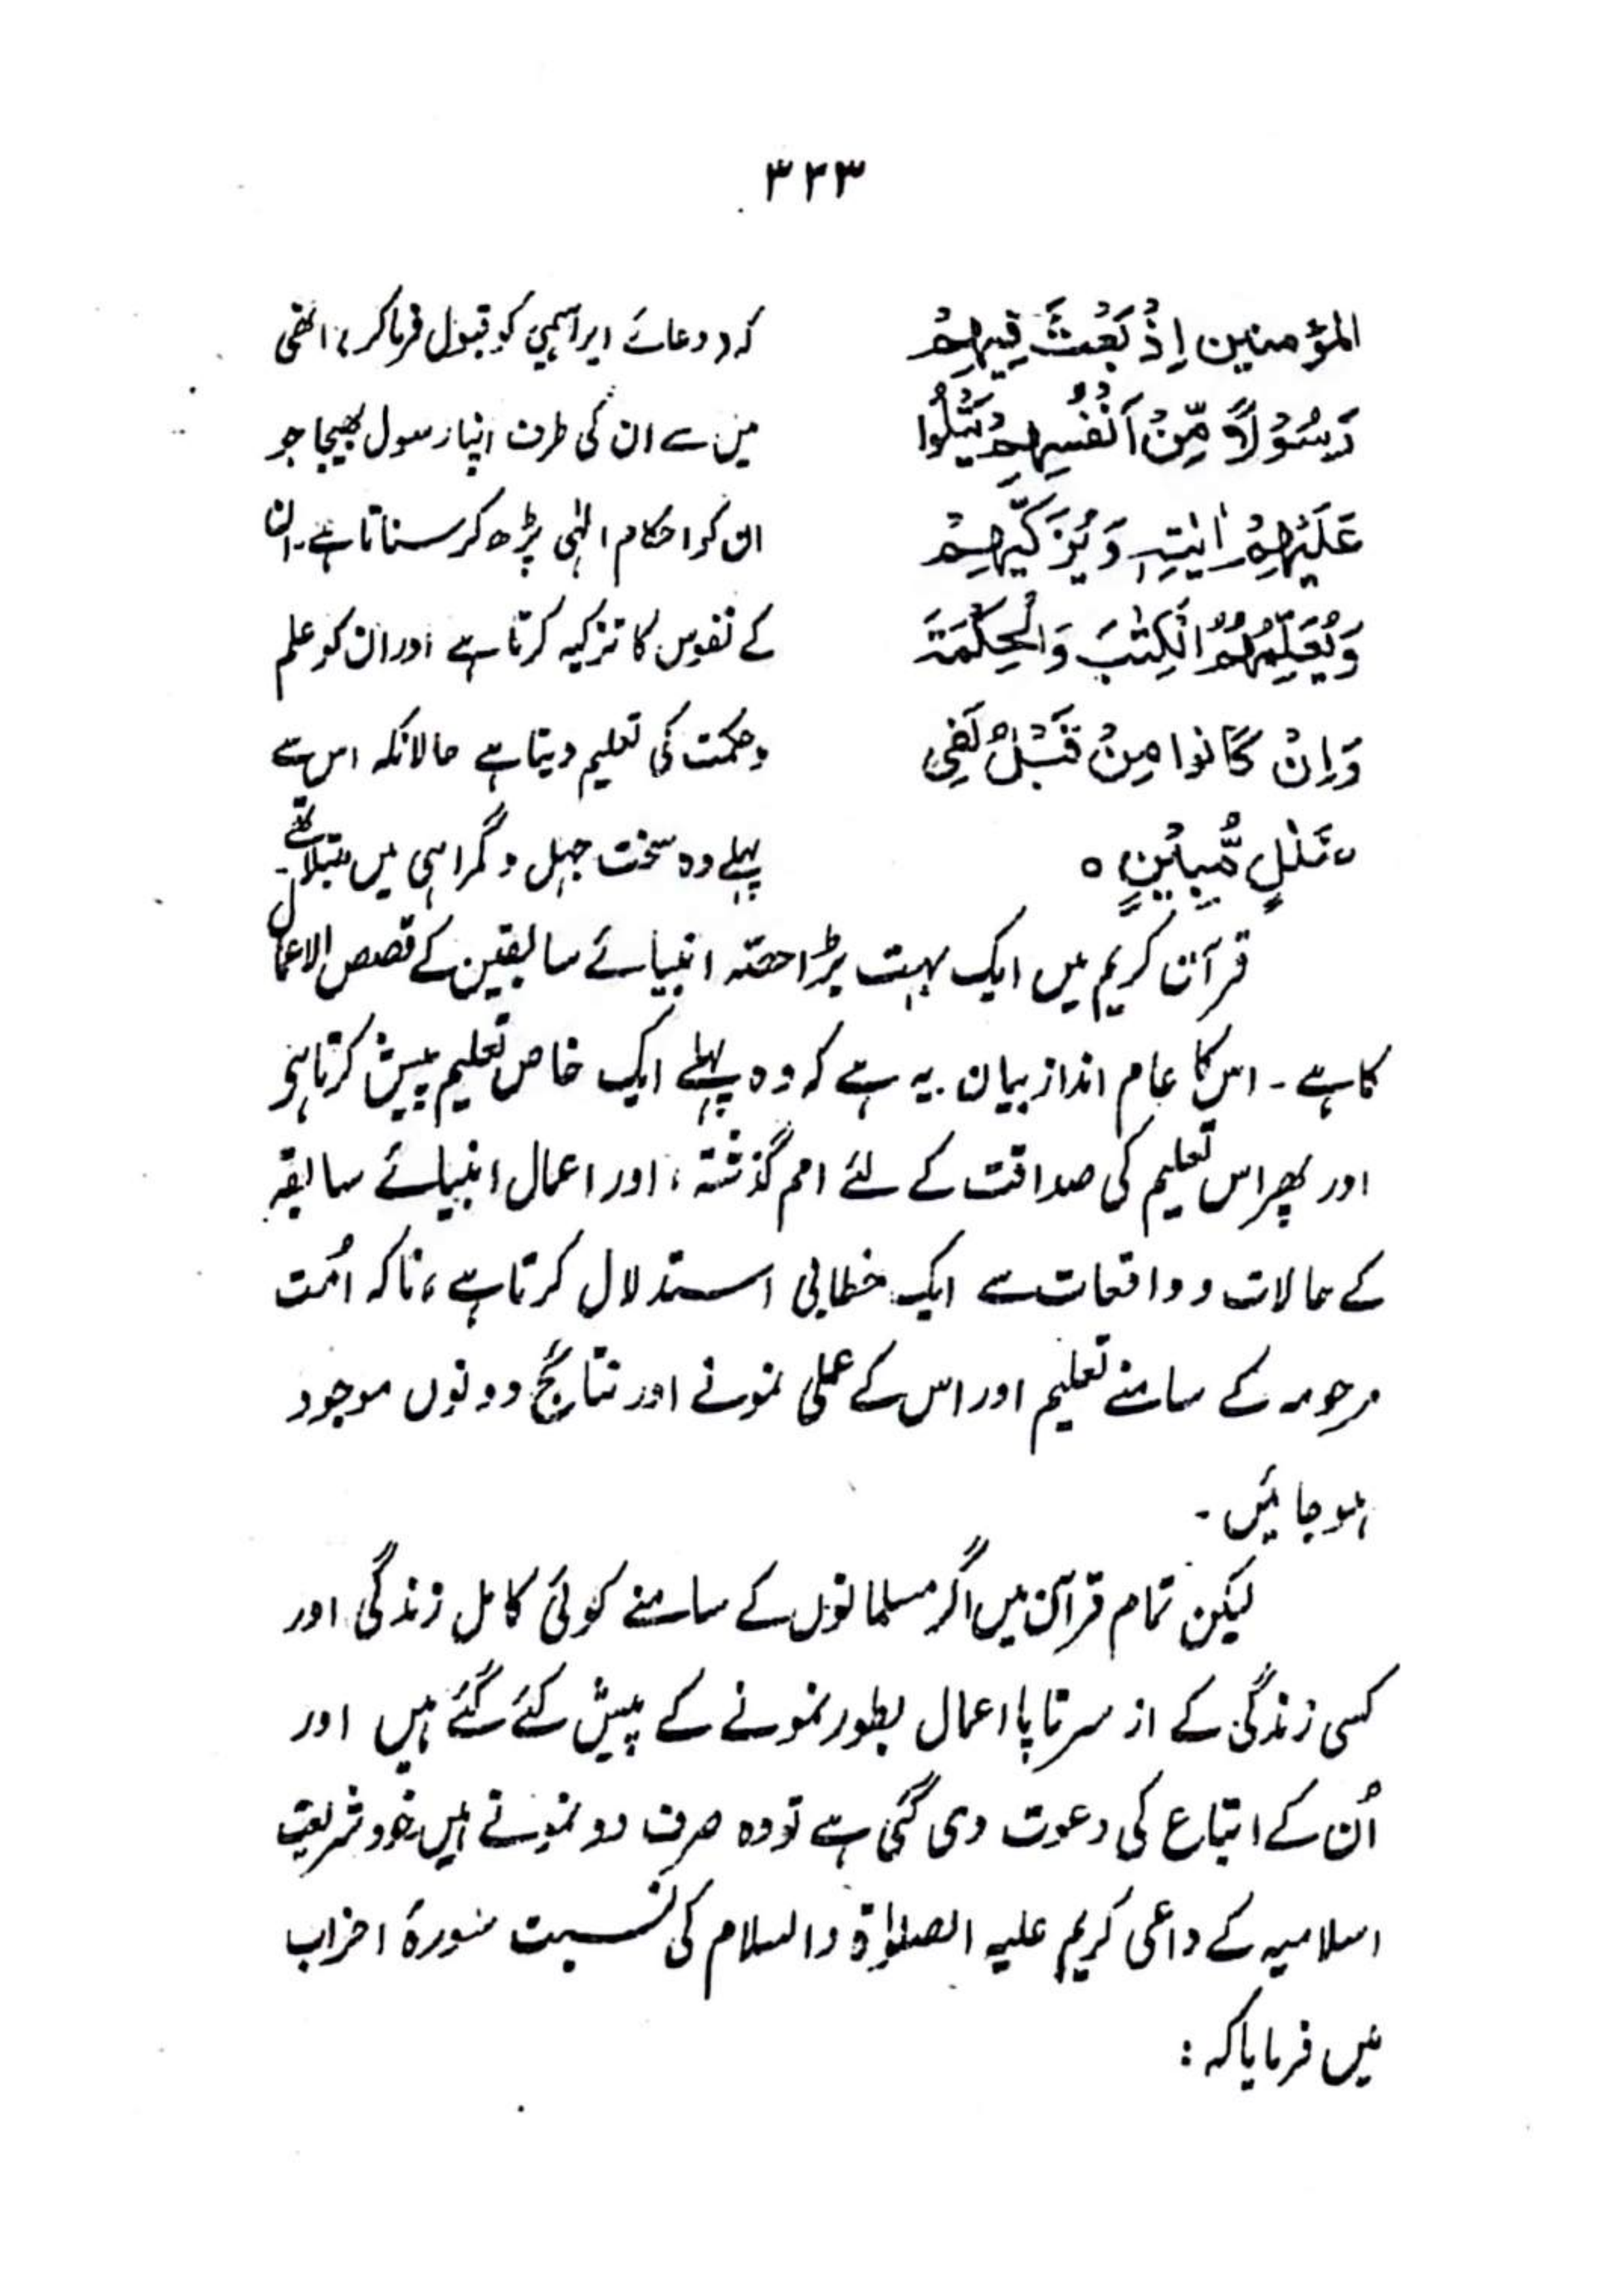 ۳۲۳
المؤمنین اِذْ بَعَثَ فِیْهِمْ
رَسُوْلًا مِّنْ اَنْفُسِهِمْ یَتْلُوْا
عَلَیْهِمْ اٰیٰتِهٖ وَیُزَكِّیْهِمْ
وَیُعَلِّمُهُمُ الْكِتٰبَ وَالْحِكْمَةَ
وَاِنْ كَانُوا مِنْ قَبْلُ لَفِی
ضَلٰلٍ مُّبِیْنٍ ○
کہ (دعائے ابراہیمی کو قبول فرماکر) انھی
میں سے ان کی طرف اپنا رسول بھیجا جو
ان کو احکام الٰہی پڑھ کر سناتا ہے۔ ان
کے نفوس کا تزکیہ کرتا ہے اور ان کو علم
و حکمت کی تعلیم دیتا ہے حالانکہ اس سے
پہلے وہ سخت جہل و گمراہی میں مبتلا تھے۔
قرآن کریم میں ایک بہت بڑا حصّہ انبیائے سابقین کے قصص الاعمال
کا ہے ۔ اس کا عام انداز بیان یہ ہے کہ وہ پہلے ایک خاص تعلیم پیش کرتا ہی
اور پھر اس تعلیم کی صداقت کے لئے امم گذشتہ، اور اعمال انبیائے سابقہ
کے حالات و واقعات سے ایک خطابی استدلال کرتا ہے، تاکہ اُمت
مرحومہ کے سامنے تعلیم اور اس کے عملی نمونے اور نتائج دونوں موجود
ہوجائیں ۔
لیکن تمام قرآن میں اگر مسلمانوں کے سامنے کوئی کامل زندگی اور
کسی زندگی کے از سرتاپا اعمال بطور نمونے کے پیش کئے گئے ہیں اور
اُن کے اتباع کی دعوت دی گئی ہے تو وہ صرف دو نمونے ہیں خود شریعت
اسلامیہ کے داعی کریم علیہ الصلوٰۃ والسلام کی نسبت سورۂ احزاب
میں فرمایا کہ :